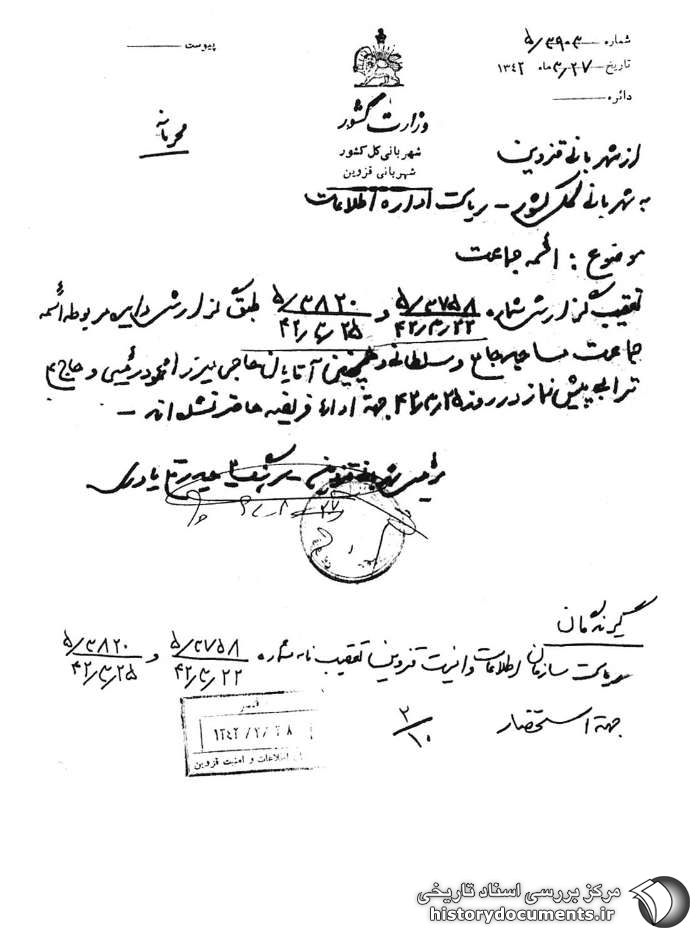 شماره ۵/۳۹۰۳
تاریخ ۳/۲۷ ماه ۱۳۴۲
دائره
پیوست
وزارت کشور
شهربانی کل کشور
شهربانی قزوین
محرمانه
از شهربانی قزوین
به شهربانی کل کشور – ریاست اداره اطلاعات
موضوع : ائمه جماعت
تعقیب گزارش شماره ۵/۳۷۵۸ ۴۲/۳/۲۲ و ۵/۳۸۲۰ ۴۲/۳/۲۵ طبق گزارش دایره مربوطه ائمه
جماعت مساجد جامع و سلطانی و همچنین آقایان حاجی میرزا محمود رئیسی و حاج
ترابی پیش نماز در روز ۴۲/۳/۲۵ جهة اداء فریضه حاضر نشده‌اند –
رئیس شهربانی قزوین – سرهنگ
گیرندگان
ریاست سازمان اطلاعات و امنیت قزوین تعقیب نامه شماره ۵/۳۷۵۸ ۴۲/۳/۲۲ و ۵/۳۸۲۰ ۴۲/۳/۲۵
جهة استحضار
۲/۱۰
اطلاعات و امنیت قزوین
مرکز بررسی اسناد تاریخی
historydocuments.ir